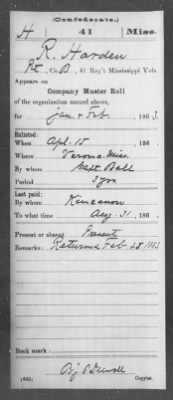 (Confederate.)
H 41 Miss.
R. Harden
Pt, Co. B, 41 Reg't Mississippi Vols
Appears on
Company Muster Roll
of the organization named above,
for Jan & Feb, 1863.
Enlisted:
When Apl. 15, 186
Where Verona, Miss.
By whom Ball
Period 3 yrs
Last paid:
By whom Kincanon
To what time Aug. 31, 186
Present or absent Present
Remarks: Returned Feb 25 1863
Book mark:
(642) Copyist.